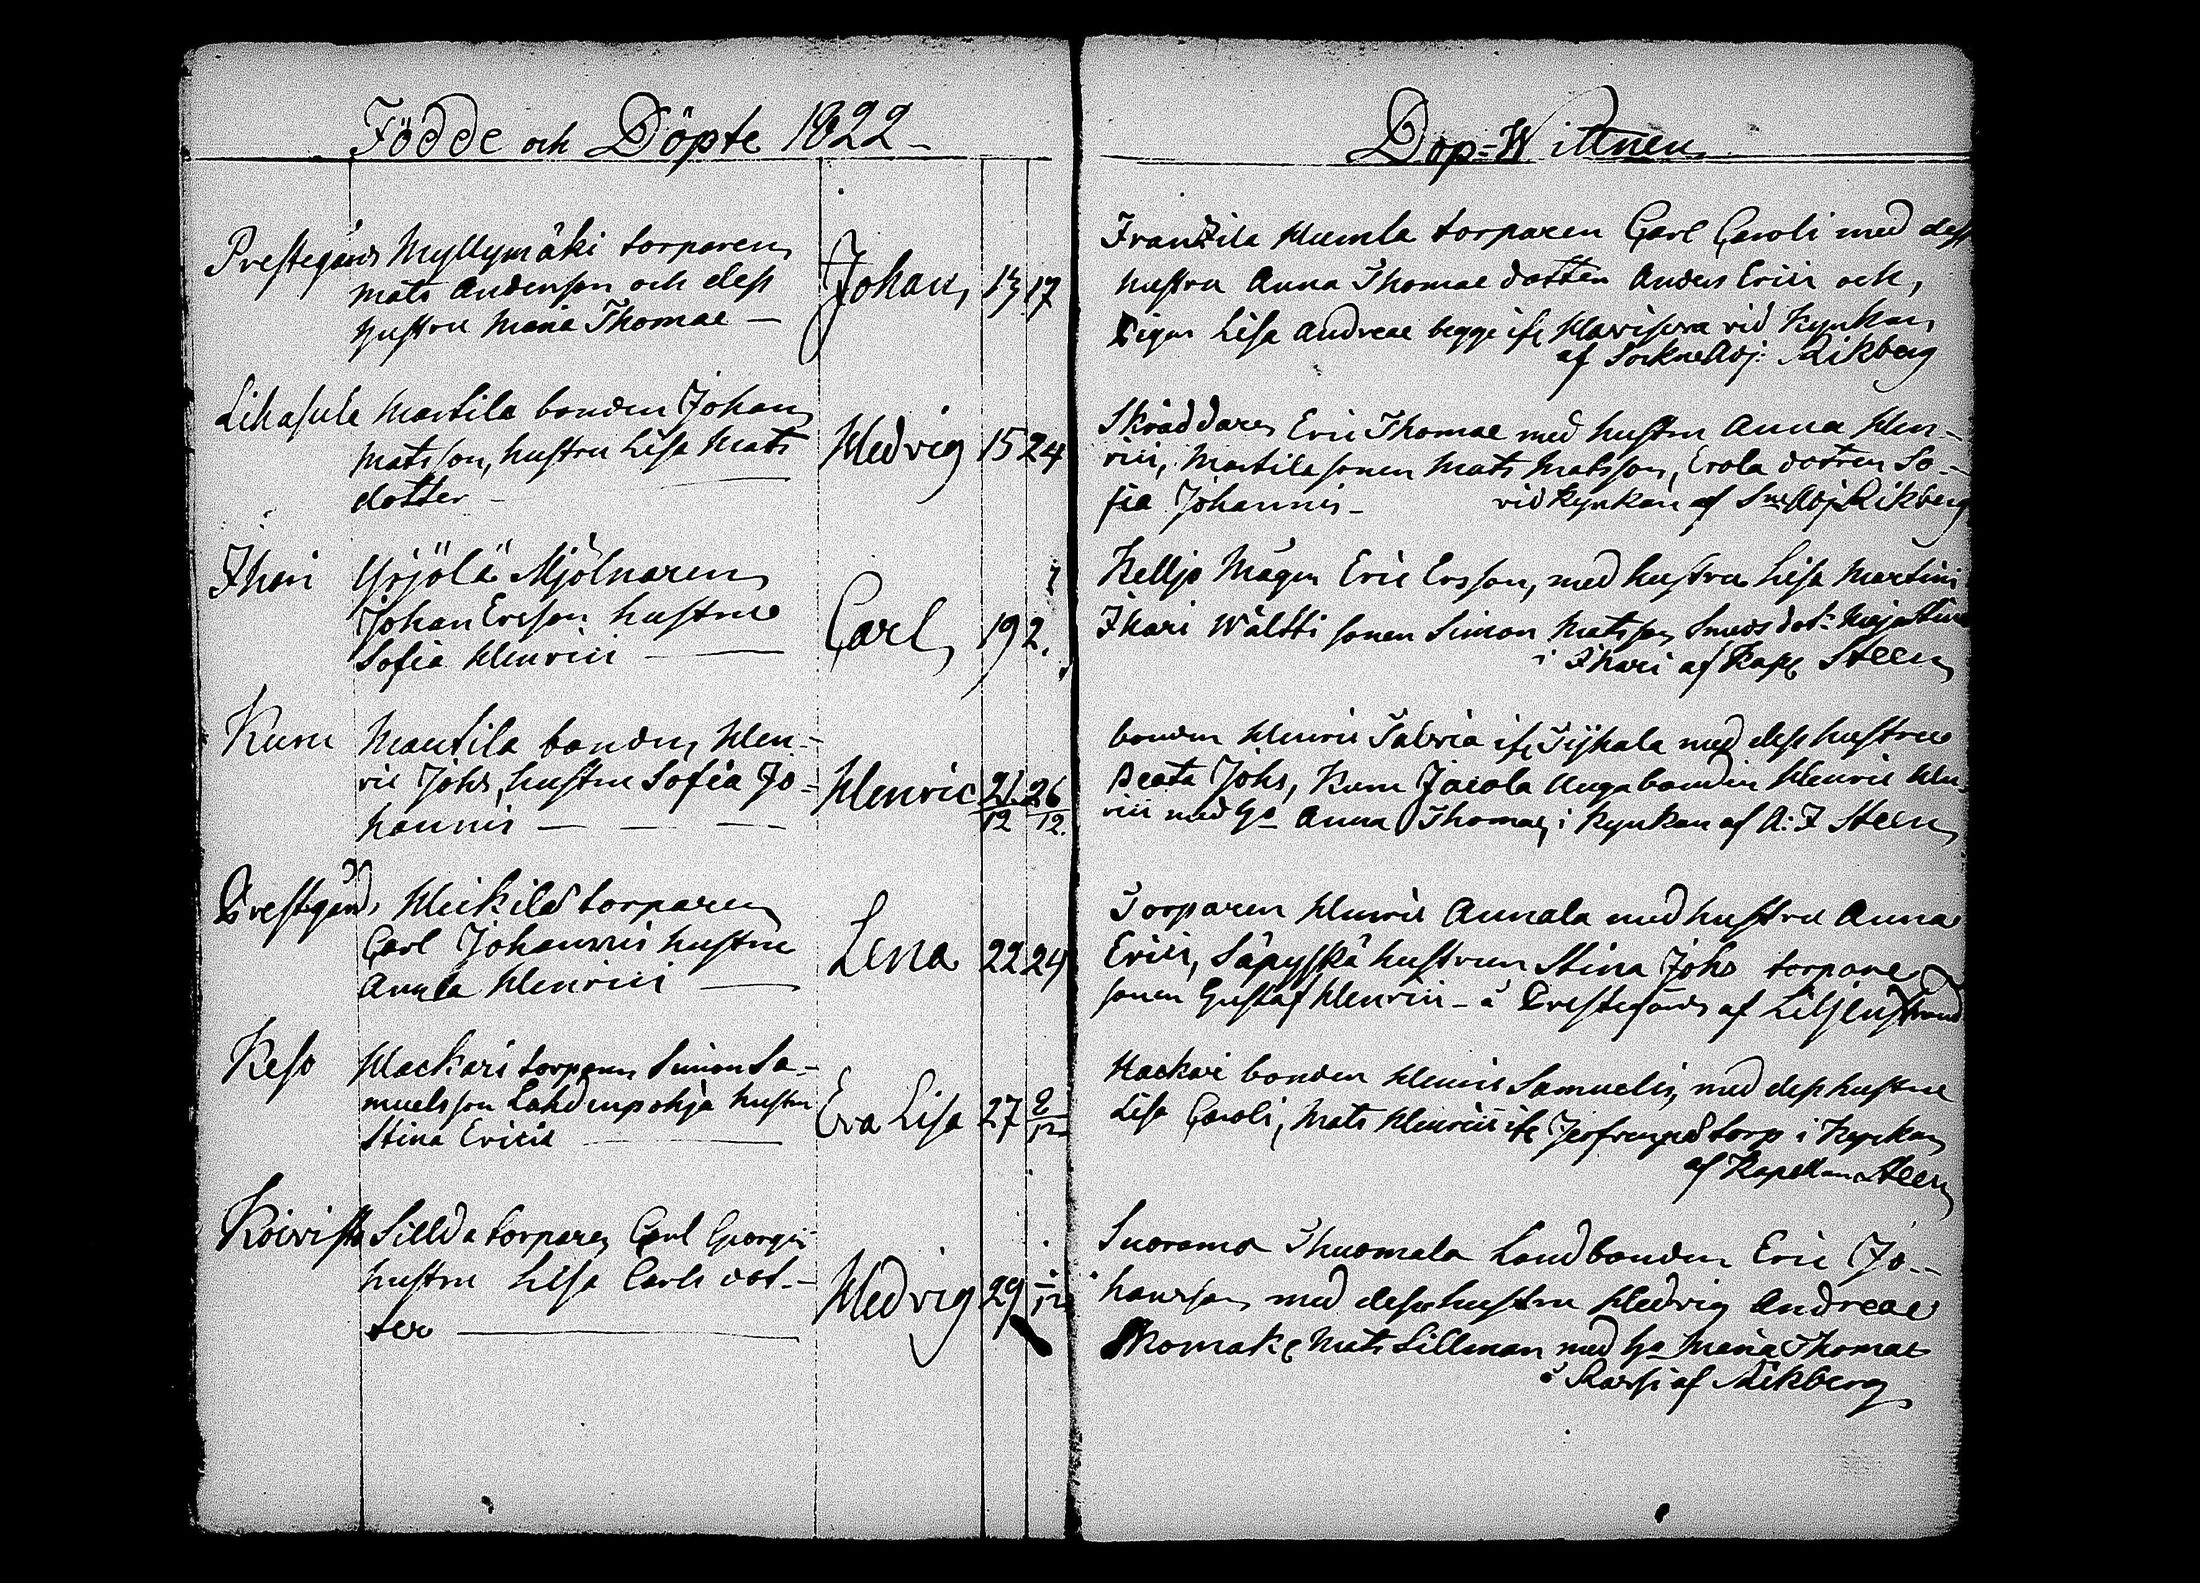 Födde och Döpte 1822
Prestegårds Myllymäki torparen
Mats Andersson och dess
hustru Maria Thomae
Johan 13 17
Lihasula Martila bonden Johan
Matsson, hustru Lisa Mats
dotter
Hedvig 15 24
Ihari Yrjölä Mjölnaren
Johan Ersson hustru
Sofia Henrici
Carl 19 2.
Kuru Mantila bonden Hen-
ric Johs, hustru Sofia Jo-
hannis
Henric 21/12 26/12.
Prestgårds Heikilä torparen
Carl Johannis hustru
Anna Henrici
Lena 22 24
Keso Hackari torparen Simon Sa-
muelsson Lahdenpohja hustru
Stina Erici
Eva Lisa 27 2/12
Koivisto Sillda torparen Carl Georgii
hustru Lisa Carls dot-
ter
Hedvig 29 1/12
Dop-Wittnen
Franzila Humla torparen Carl Caroli med dess
hustru Anna Thomae dotter Anders Erici och
Pigan Lisa Andreae begge ifr vid Kyrkan
af SockneAdj: Rikberg
Skräddaren Eric Thomae med hustru Anna Hen-
rici, Martila sonen Mats Matsson, Erola dottren So-
fia Johannis vid Kyrkan af Adj Rikberg
Kelljo Mågen Eric Ersson, med hustru Lisa Martini
Ihari Wältti sonen Simon Matsson Smeds dotr Maja Stina
i Ihari af Kapl Steen
bonden Henric ifr med dess hustru
Beata Johs, Kuru Jacola Unga bonden Henric Hen-
rici med Ho Anna Thomae, i Kyrkan af A: F Steen
Torparen Henric Annala med hustru Anna
Erici, Säpyskä hustrun Stina Johs torpare
sonen Gustaf Henrici - i Prestegården af Liljenstrand
Hackari bonden Henric Samuelis, med dess hustru
Lisa Caroli, Mats Henrici ifr torp i Kyrkan
af Kapellan Steen
Suoramo Thuomala Landbonden Eric Jo-
hansson med dess hustru Hedvig Andreae
Mats Sillman med Ho Maria Thomae
i Karsi af Rikberg